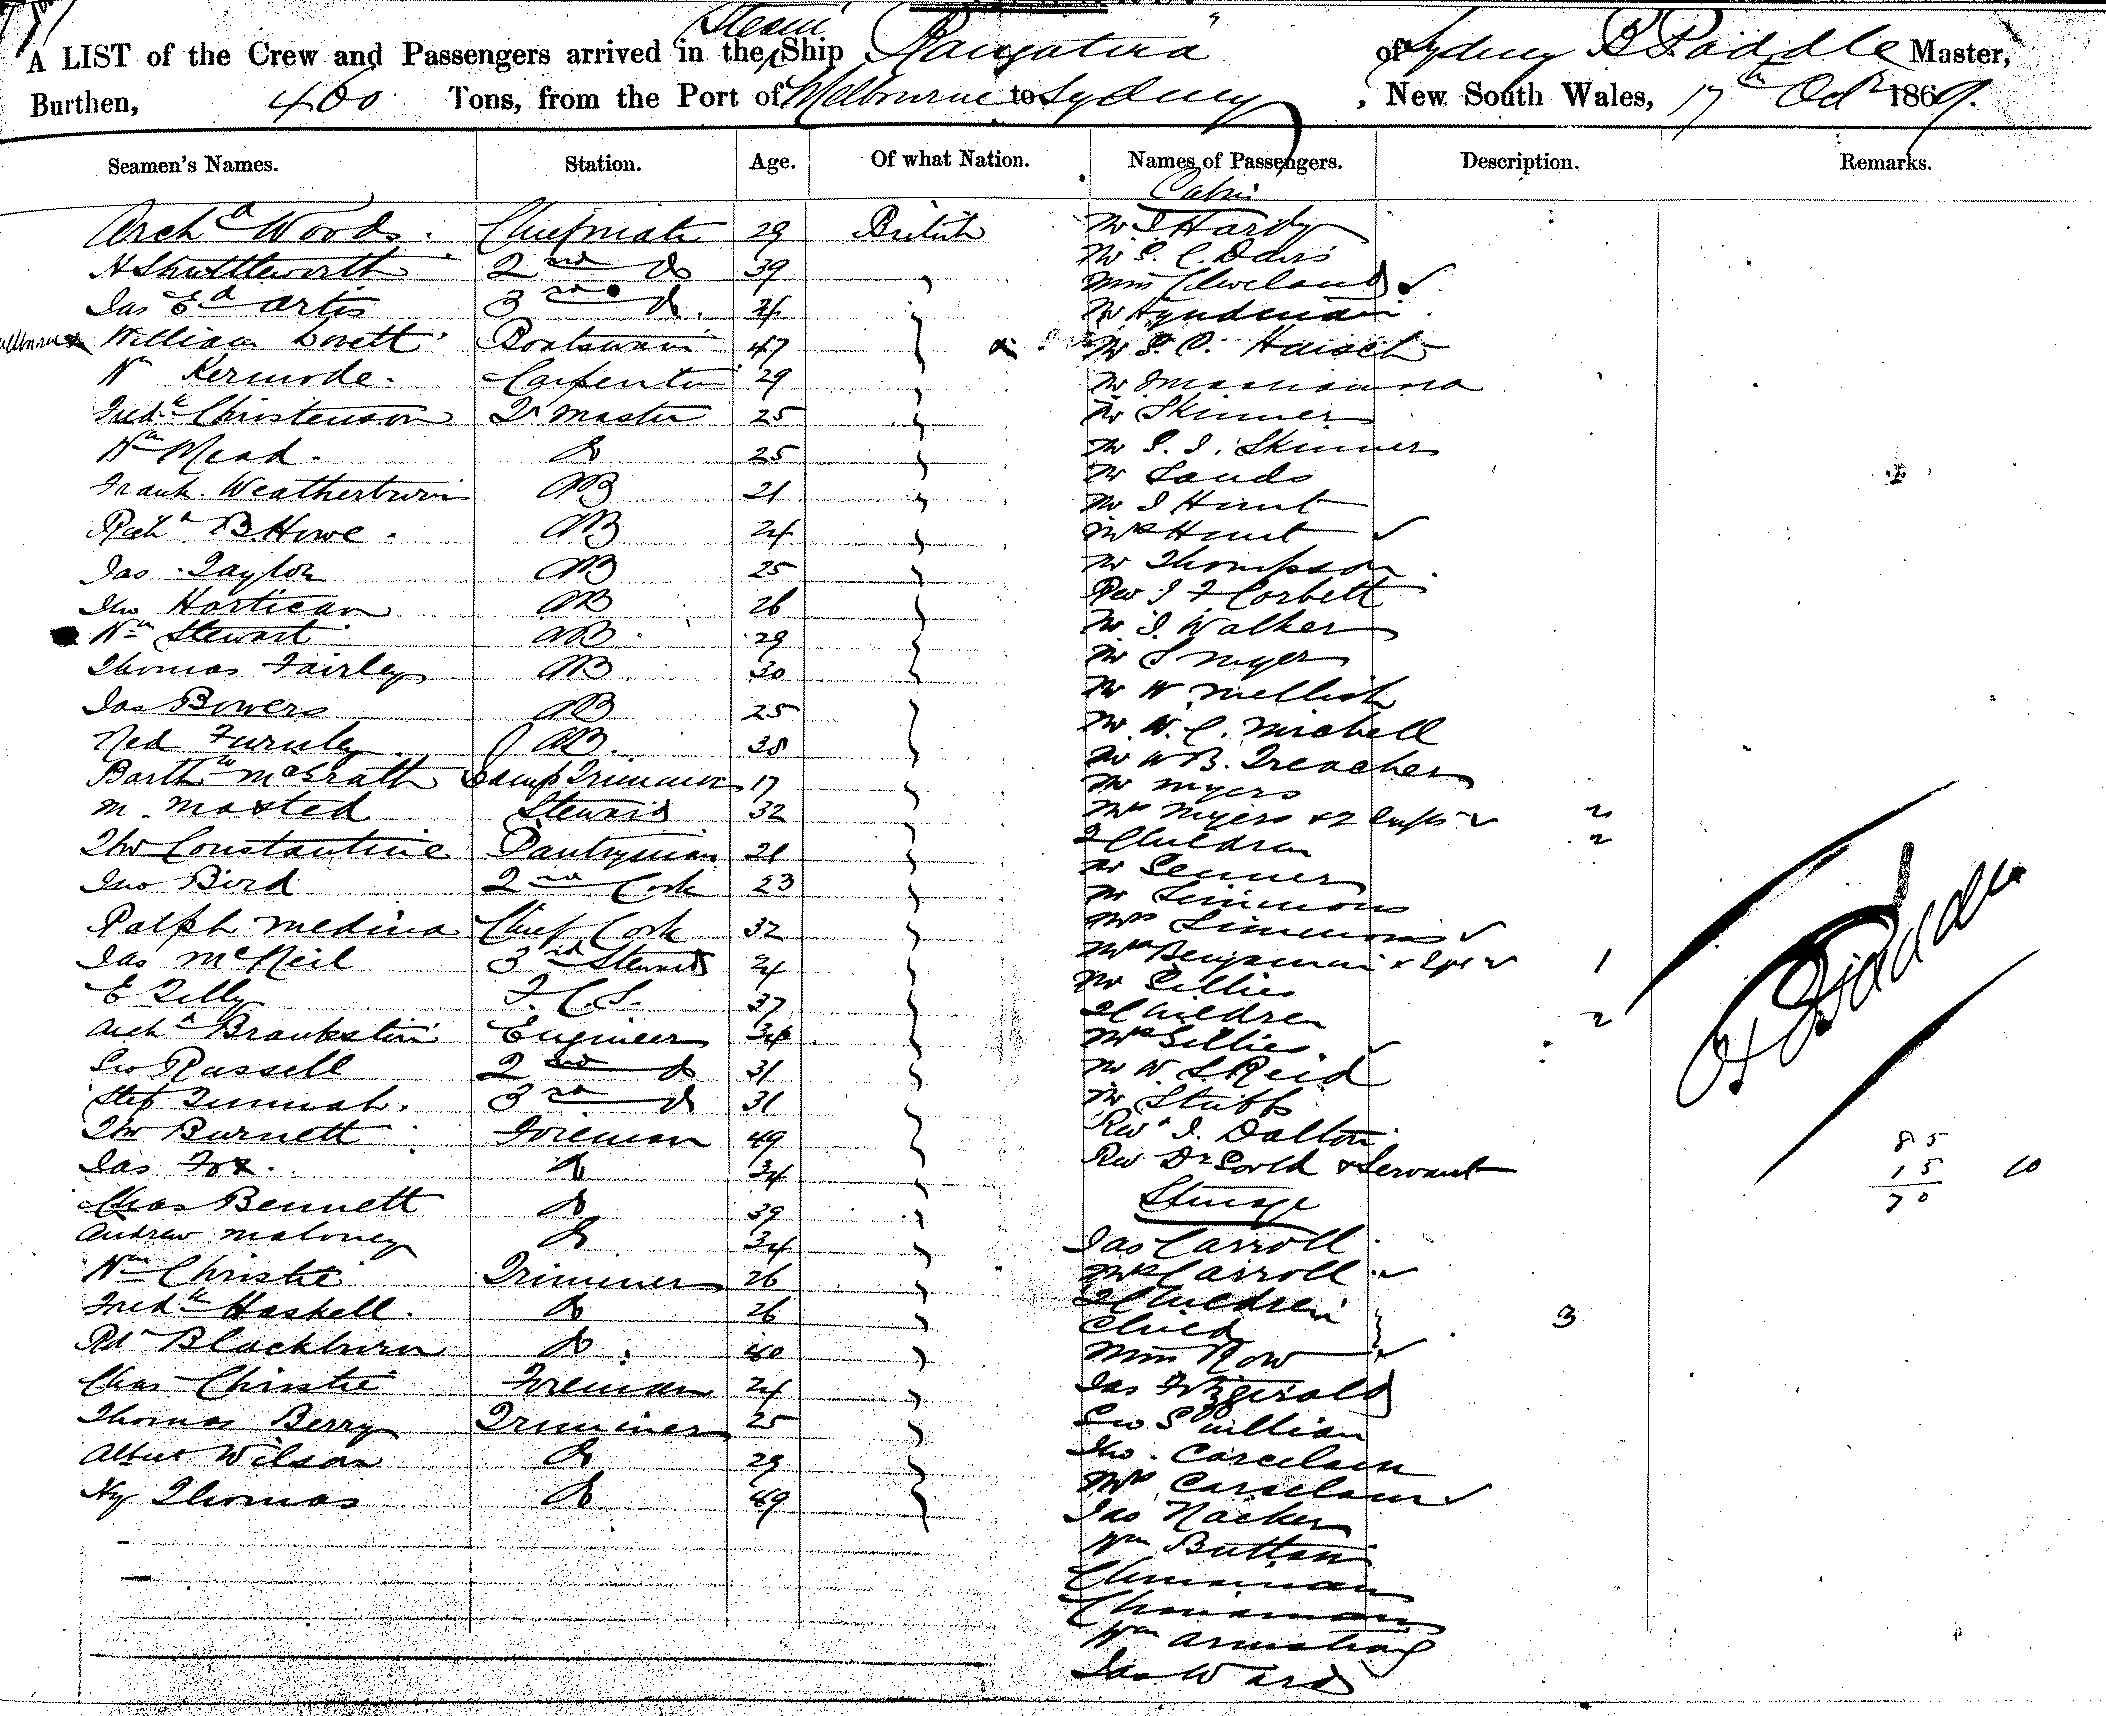 A LIST of the Crew and Passengers arrived in the Steam Ship "Rangatira" of Sydney B Paddle Master,
Burthen, 460 Tons, from the Port of Melbourne to Sydney, New South Wales, 17th Octr 1869.
Seamen's Names. Station. Age. Of what Nation. Names of Passengers. Description. Remarks.
Cabin
Archd Woods. Chiefmate 29 British Mr J Hardy
H Shuttleworth 2nd do 39 Mr S. C. Davis
Jas Ed Artis 3rd do. 24 Miss Cleveland
William Lovett Boatswain 47 Mr Hyndman
Wm Kermode. Carpenter 29 Mr
Fredk Christenson Qr Master 25 Mr Skinner
Wm Mead. do 25 Mr S. I. Skinner
Frank Weatherburn AB 21 Mr Sands
Mr J Hunt
Richd B. Howe. AB 24 Mrs Hunt
Jas Taylor AB 25 Mr Thompson
Jno Hartican AB 26 Rev J F Corbett
Wm Stewart AB 29 Mr J. Walker
Thomas Fairley AB 30 Mr S Myer
Jas Bowers AB 25 Mr W Mellish
Ned Furnley AB. 38 Mr W. C. Michell
Barthw McGrath Lamp Trimmer 17 Mr W B. Treacher
Mr Myers
M. Maxted Steward 32 Mrs Myers & 2 Infts 2
Tho Constantine Pantryman 21 2 Children 2
Mr Senner
Jno Bird 2nd Cook 23 Mr Simmons
Ralph Medina Chief Cook 32 Mrs Simmons
Jas McNeil 3rd Steward 24 Mrs Benjamin & 1
E Tilly F. C. S. 37 Mr Gillies
Archd Brankstin Engineer 34 2 Children 2
Mrs Gillies
Geo Russell 2nd do 31 Mr W. S. Reid
Step 3rd do 31 Mr Stubbs
Tho Burnett Foreman 49 Revd J. Dalton
Jas Fox. do 34 Rev Dr & Servant
85
15 10
70
Chas Bennett do 39 Steerage
Andrew Maloney do 34 Jas Carroll
Wm Christie Trimmer 26 Mrs Carroll
Fredk Haskell. do 26 2 Children
Child 3
Rt Blackburn do. 40 Miss Row
Chas Christie Foreman 24 Jas Fitzgerald
Thomas Berry Trimmer 25 Geo
Albert Wilson do 29 Tho. Carcelain
Hy Thomas do 49 Mrs Carcelain
Jas Nacker
Wm Button
Chinaman
Chinaman
Wm Armstrong
Jas Ward